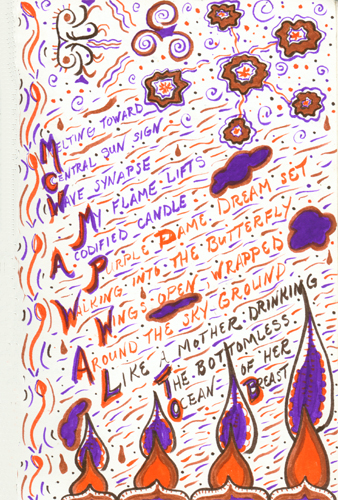 MELTING TOWARD
CENTRAL SUN SIGN
WAVE SYNAPSE
MY FLAME LIFTS
CODIFIED CANDLE
PURPLE DAME. DREAM SET
WALKING INTO THE BUTTERFLY
WING: OPEN, WRAPPED
AROUND THE SKY-GROUND
LIKE A MOTHER: DRINKING
THE BOTTOMLESS.
OCEAN OF HER BREAST